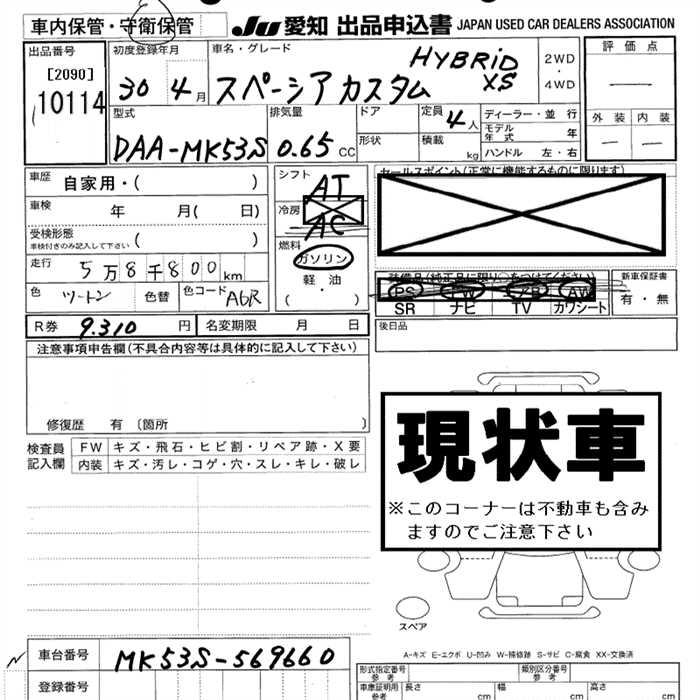 車内保管・守衛保管
JU 愛知 出品申込書 JAPAN USED CAR DEALERS ASSOCIATION
出品番号 [2090] 10114
初度登録年月 30 4月
車名・グレード スペーシアカスタム HYBRID XS
2WD ・ 4WD
評価点 —
外装 — 内装 —
型式 DAA-MK53S
排気量 0.65 cc
ドア
形状
定員 4人
積載 kg
ディーラー・並行
モデル年式 年
ハンドル 左・右
車歴 自家用・( )
車検 年 月( 日)
受検形態 車検付きのみ記入して下さい ( )
走行 5万8千800km
色 ツートン 色替 色コード A6R
R券 9.310 円 名変期限 月 日
シフト AT
冷房 AC
燃料 ガソリン
軽・油
( )
セールスポイント(正常に機能するものに限ります)
装備品(純正品に限り○をつけてください)
PS PW AB AW
SR ナビ TV カワシート
新車保証書
有・無
後日品
注意事項申告欄(不具合内容等は具体的に記入して下さい)
修復歴 有 〔箇所 〕
検査員記入欄
FW キズ・飛石・ヒビ割・リペア跡・X要
内装 キズ・汚レ・コゲ・穴・スレ・キレ・破レ
現状車
※このコーナーは不動車も含み
ますのでご注意下さい
スペア
A-キズ E-エクボ U-凹み W-補修跡 S-サビ C-腐食 XX-交換済
車台番号 MK53S-569660
登録番号
型式指定番号 参考
類別区分番号 参考
車庫証明用 参考 長さ cm 幅 cm 高さ cm